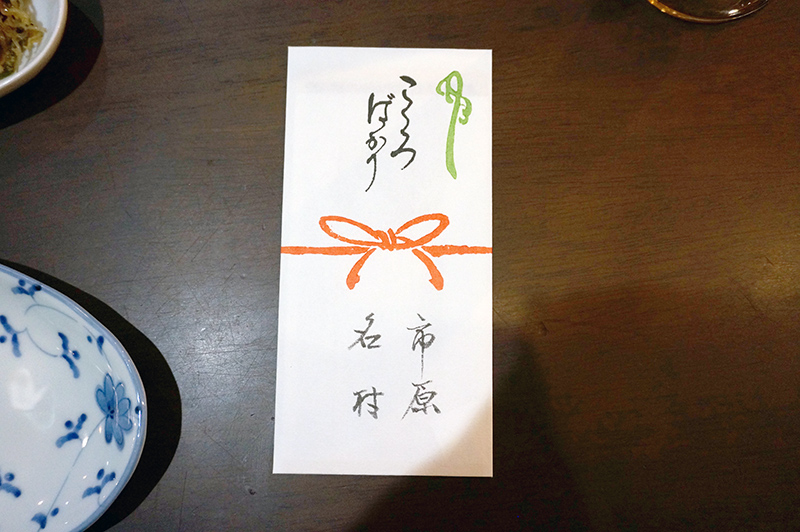 こころ
ばかり
市原
名村